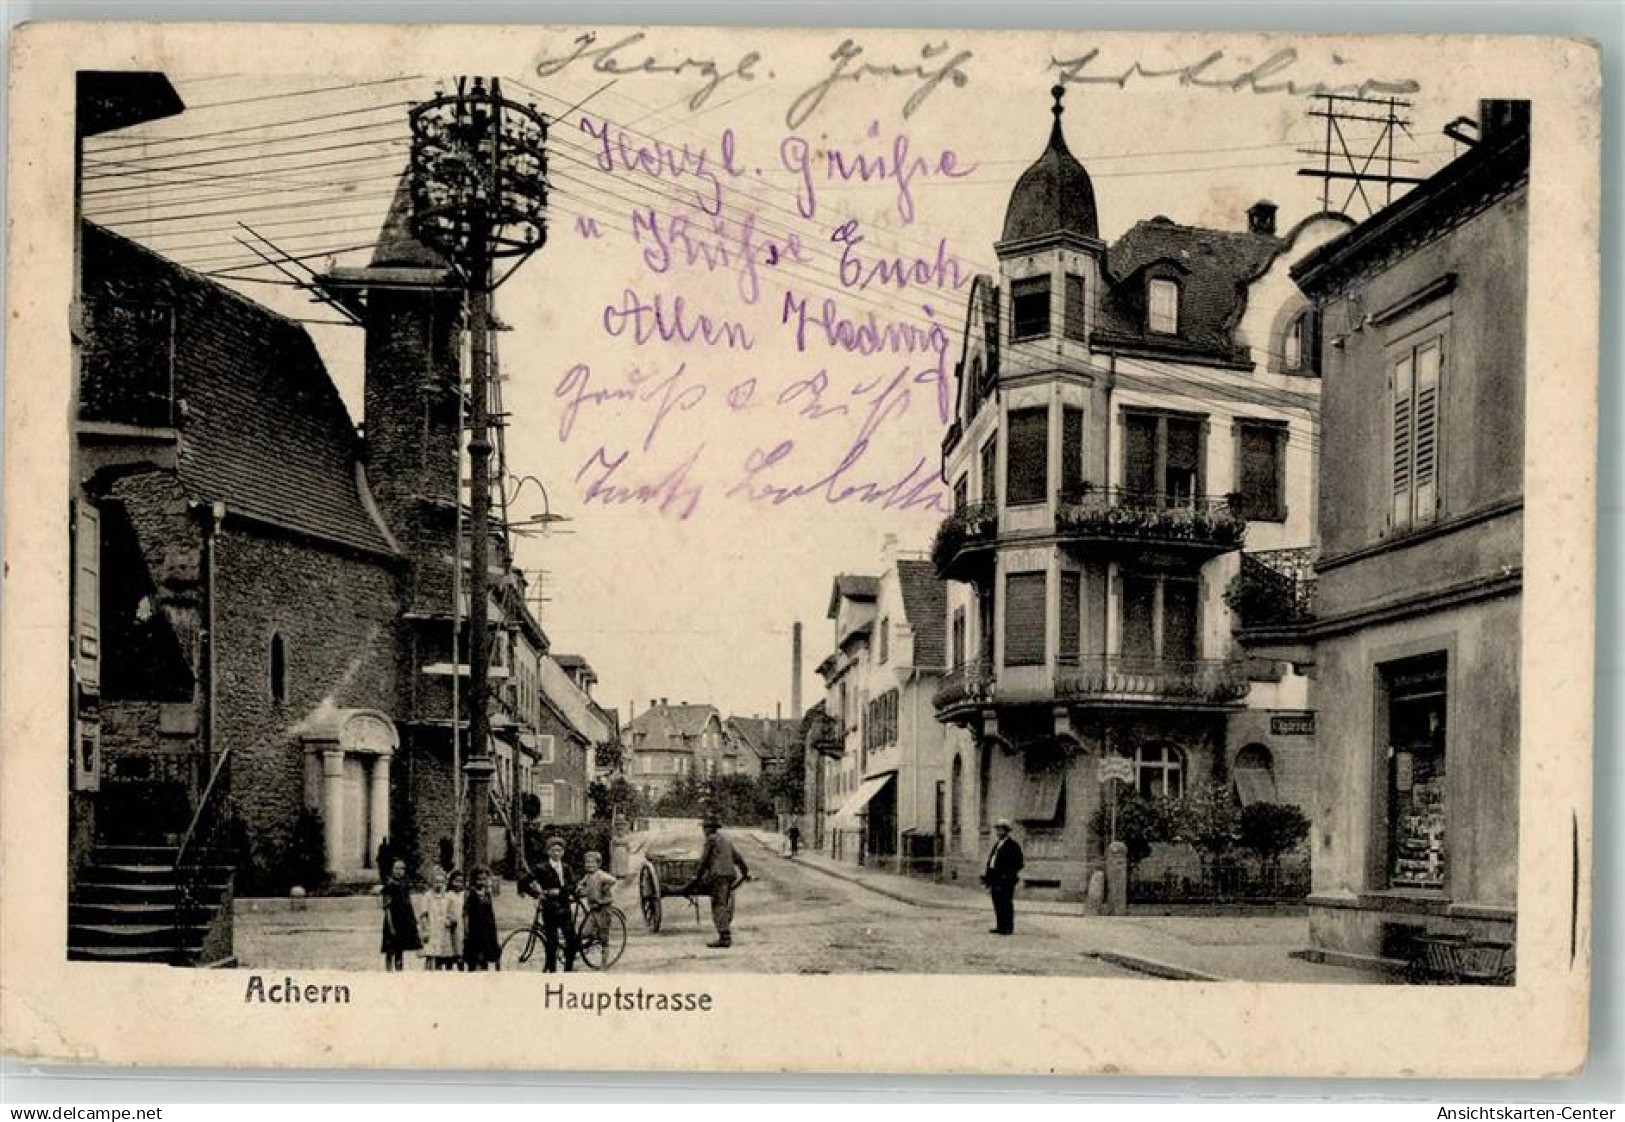 Herzl. Gruß Arthur
Herzl. Grüße
u Küße Euch
Allen Hedwig
Gruß &
Tante Babette
Achern
Hauptstrasse
www.delcampe.net
Ansichtskarten-Center